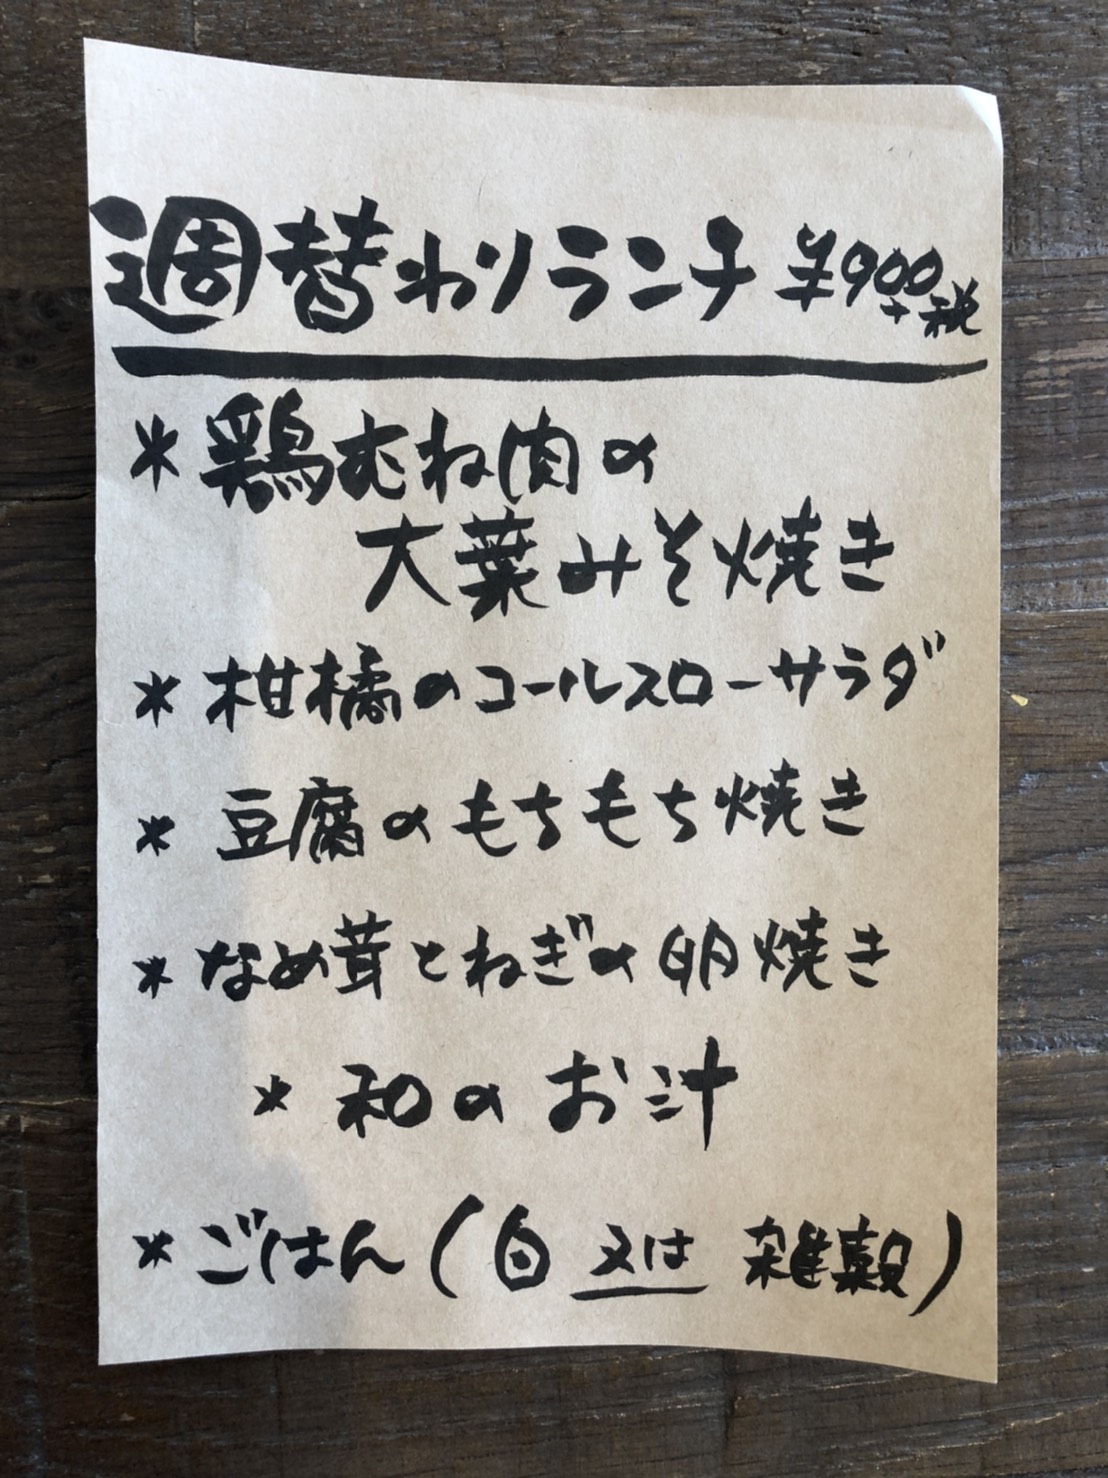 週替わりランチ ¥900+税
* 鶏むね肉の
大葉みそ焼き
* 柑橘のコールスローサラダ
* 豆腐のもちもち焼き
* なめ茸とねぎの卵焼き
* 和のお汁
* ごはん(白 又は 雑穀)